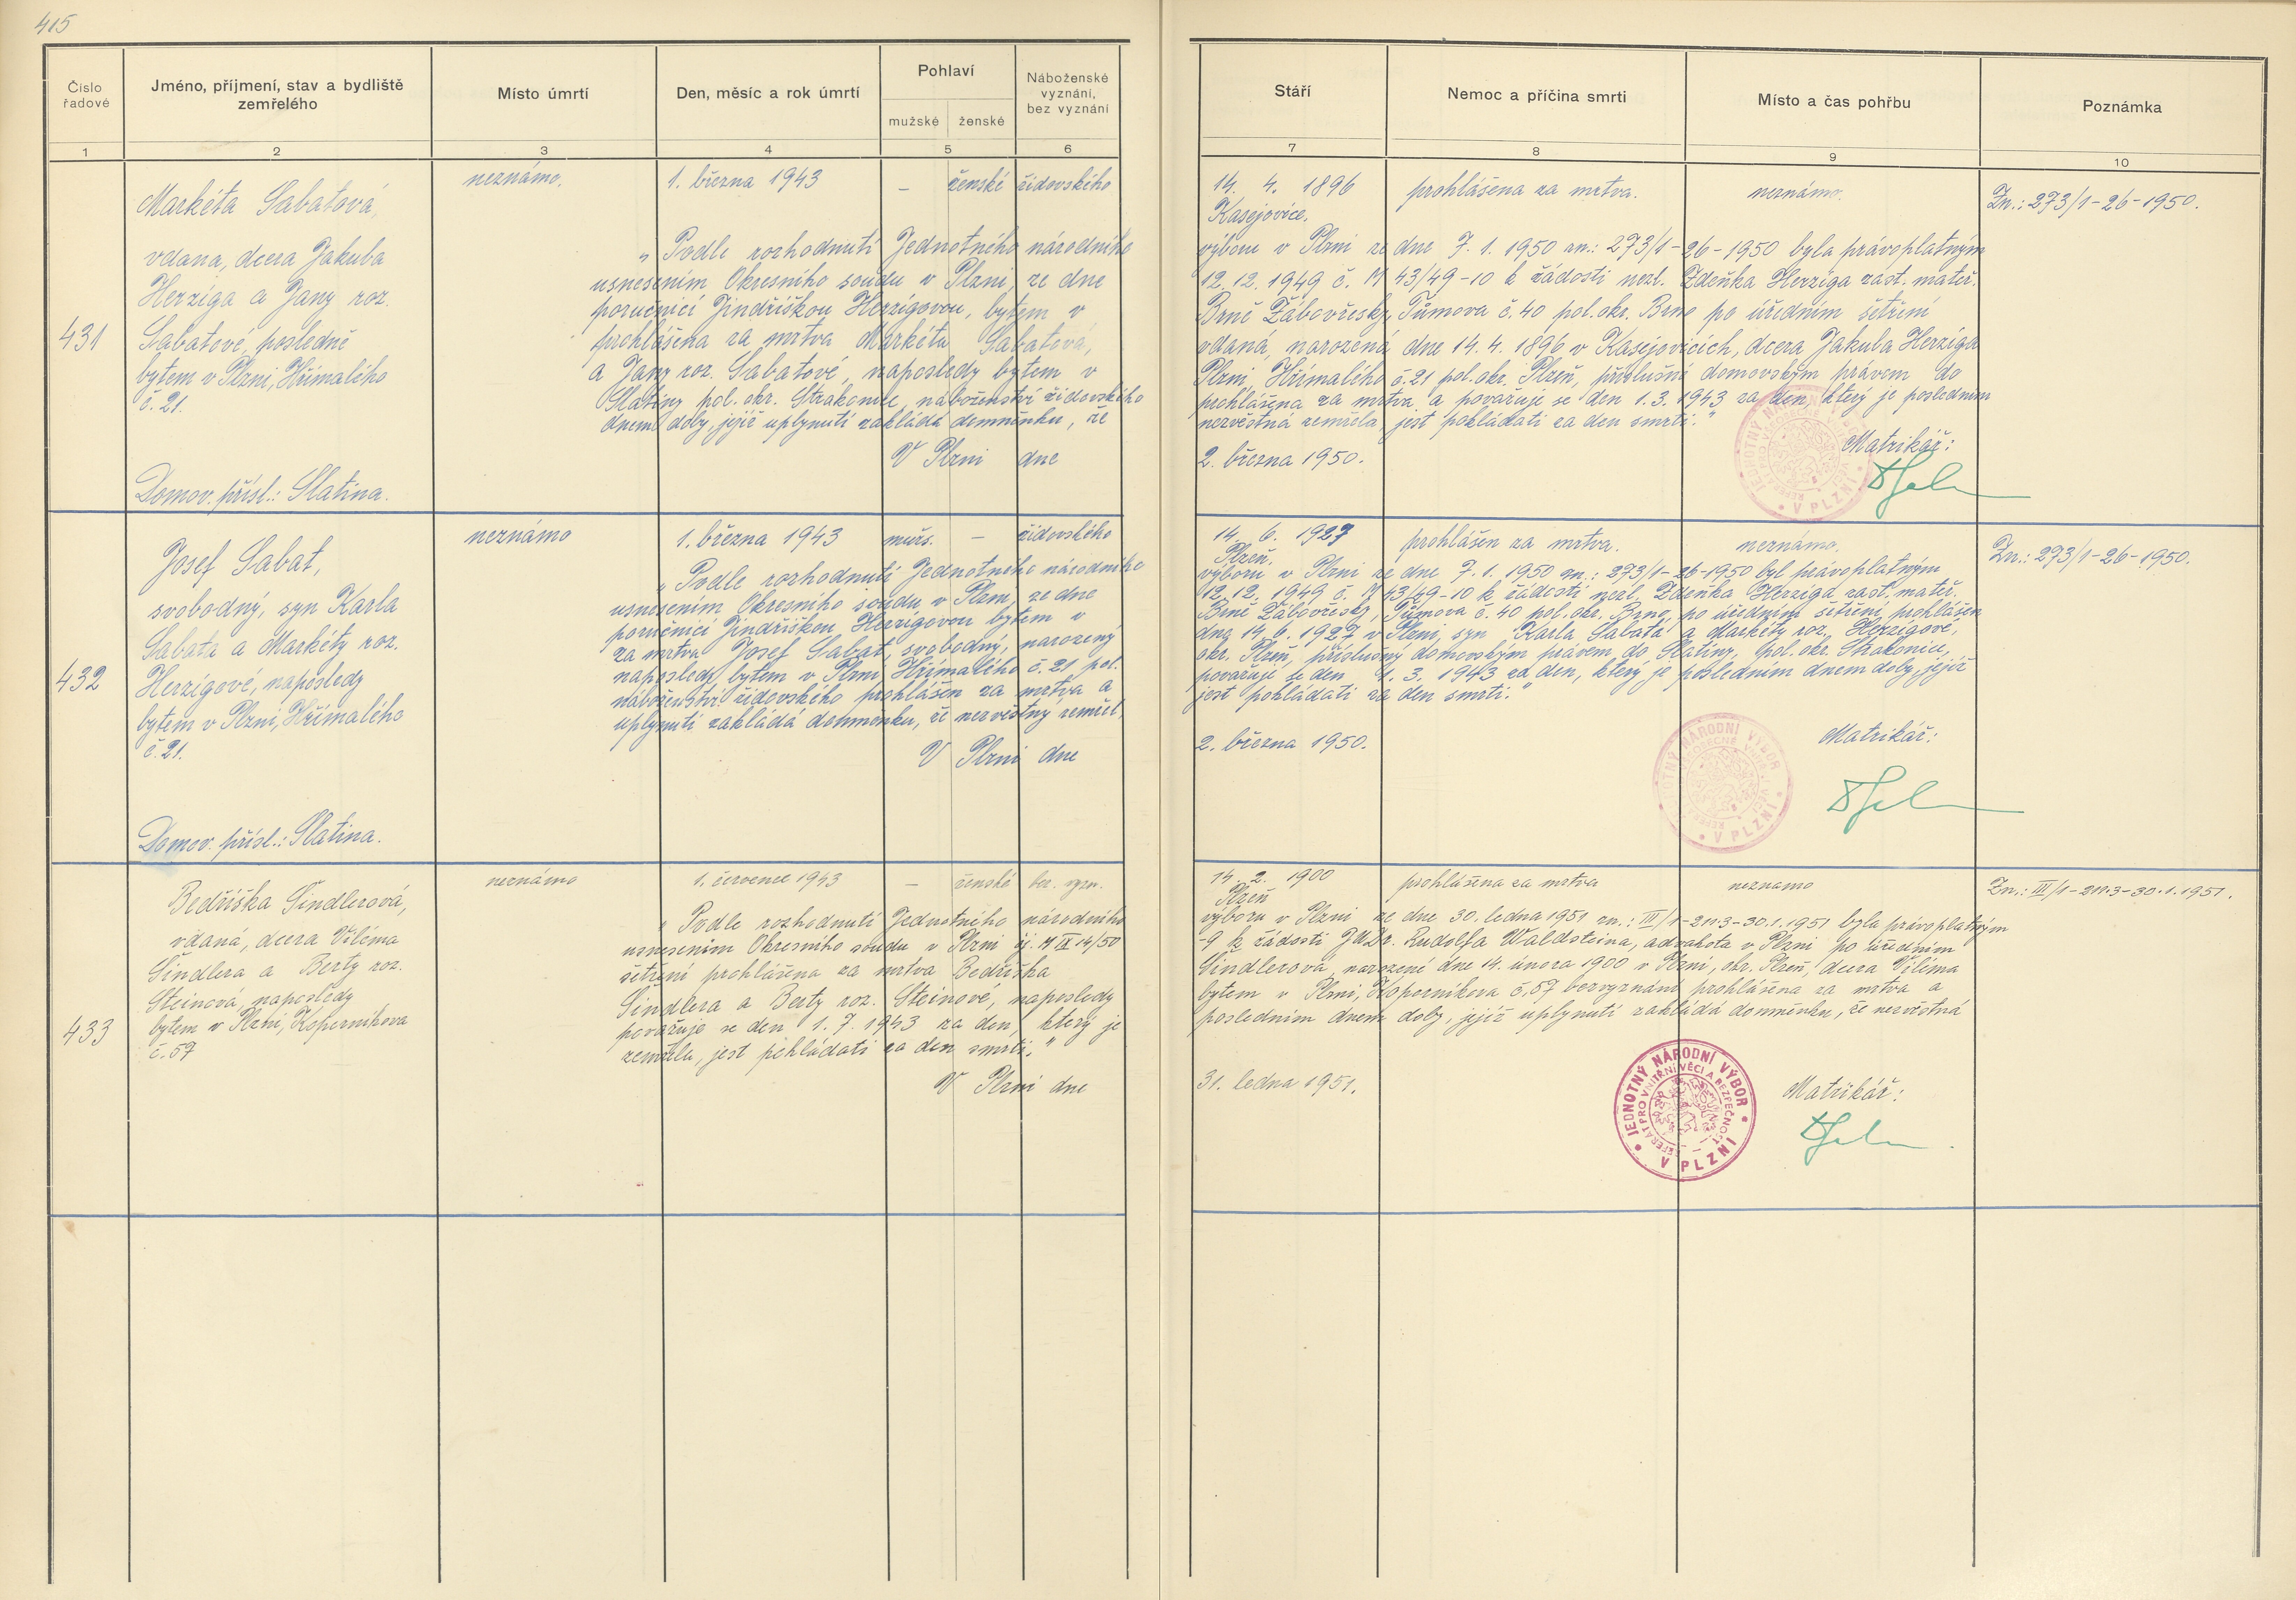 415
Číslo řadové
Jméno, příjmení, stav a bydliště zemřelého
Místo úmrtí
Den, měsíc a rok úmrtí
Pohlaví
mužské
ženské
Náboženské vyznání, bez vyznání
Stáří
Nemoc a příčina smrti
Místo a čas pohřbu
Poznámka
1 2 3 4 5 6 7 8 9 10
431
Markéta Sabatová,
vdaná, dcera Jakuba
Herziga a Jany roz.
Sabatové, posledně
bytem v Plzni, Hřímalého
č. 21.
Domov. přísl.: Slatina.
neznámo.
1. března 1943
– ženské židovského
14. 4. 1896
Kasejovice.
prohlášena za mrtva.
neznámo.
Zn.: 273/1-26-1950.
„Podle rozhodnutí Jednotného národního výboru v Plzni ze dne 7. 1. 1950 zn.: 273/1-26-1950 byla právoplatným
usnesením Okresního soudu v Plzni, ze dne 12. 12. 1949 č. M 43/49-10 k žádosti nezl. Zdeňka Herziga zást. mateř.
poručnicí Jindřiškou Herzigovou, bytem v Brně Žabovřesky, Tůmova č. 40 pol. okr. Brno po úředním šetření
prohlášena za mrtva Markéta Sabatová, vdaná, narozená dne 14. 4. 1896 v Kasejovicích, dcera Jakuba Herziga
a Jany roz. Sabatové, naposledy bytem v Plzni, Hřímalého č. 21 pol. okr. Plzeň, příslušná domovským právem do
Slatiny pol. okr. Strakonice, náboženství židovského prohlášena za mrtva a považuje se den 1. 3. 1943 za den, který je posledním
dnem doby, jejíž uplynutí zakládá domněnku, že nezvěstná zemřela, jest pokládati za den smrti.“
V Plzni dne 2. března 1950.
Matrikář:
JEDNOTNÝ NÁRODNÍ VÝBOR V PLZNI
432
Josef Sabat,
svobodný, syn Karla
Sabata a Markéty roz.
Herzigové, naposledy
bytem v Plzni, Hřímalého
č. 21.
Domov. přísl.: Slatina.
neznámo
1. března 1943
mužs. – židovského
14. 6. 1927
Plzeň.
prohlášen za mrtva.
neznámo.
Zn.: 273/1-26-1950.
„Podle rozhodnutí Jednotného národního výboru v Plzni ze dne 7. 1. 1950 zn.: 273/1-26-1950 byl právoplatným
usnesením Okresního soudu v Plzni, ze dne 12. 12. 1949 č. M 43/49-10 k žádosti nezl. Zdeňka Herziga zast. mateř.
poručnicí Jindřiškou Herzigovou bytem v Brně Žabovřesky, Tůmova č. 40 pol. okr. Brno, po úředním šetření prohlášen
za mrtva Josef Sabat, svobodný, narozený dne 14. 6. 1927 v Plzni, syn Karla Sabata a Markéty roz. Herzigové,
naposledy bytem v Plzni Hřímalého č. 21 pol. okr. Plzeň, příslušný domovským právem do Slatiny, pol. okr. Strakonice,
náboženství židovského prohlášen za mrtva a považuje se den 1. 3. 1943 za den, který je posledním dnem doby, jejíž
uplynutí zakládá domněnku, že nezvěstný zemřel, jest pokládati za den smrti.“
V Plzni dne 2. března 1950.
Matrikář:
JEDNOTNÝ NÁRODNÍ VÝBOR V PLZNI
433
Bedřiška Šindlerová,
vdaná, dcera Viléma
Šindlera a Berty roz.
Steinová, naposledy
bytem v Plzni, Koperníkova
č. 57
neznámo
1. července 1943
– ženské bez. vyzn.
14. 2. 1900
Plzeň
prohlášena za mrtva
neznamo
Zn.: III/1-211.3-30.1.1951.
„Podle rozhodnutí Jednotného národního výboru v Plzni ze dne 30. ledna 1951 zn.: III/1-211.3-30.1.1951 byla právoplatným
usnesením Okresního soudu v Plzni čj. M IX 14/50 -9 k žádosti JUDr. Rudolfa Waldsteina, advokáta v Plzni po úředním
šetření prohlášena za mrtva Bedřiška Šindlerová, narozené dne 14. února 1900 v Plzni, okr. Plzeň, dcera Viléma
Šindlera a Berty roz. Steinové, naposledy bytem v Plzni, Koperníkova č. 57 bezvyznání prohlášena za mrtva a
považuje se den 1. 7. 1943 za den, který je posledním dnem doby, jejíž uplynutí zakládá domněnku, že nezvěstná
zemřela, jest pokládati za den smrti.“
V Plzni dne 31. ledna 1951.
Matrikář:
JEDNOTNÝ NÁRODNÍ VÝBOR V PLZNI
REFERÁT PRO VNITŘNÍ VĚCI A BEZPEČNOST